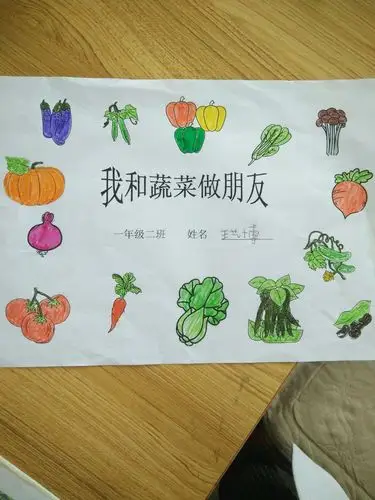 我和蔬菜做朋友
一年级二班 姓名